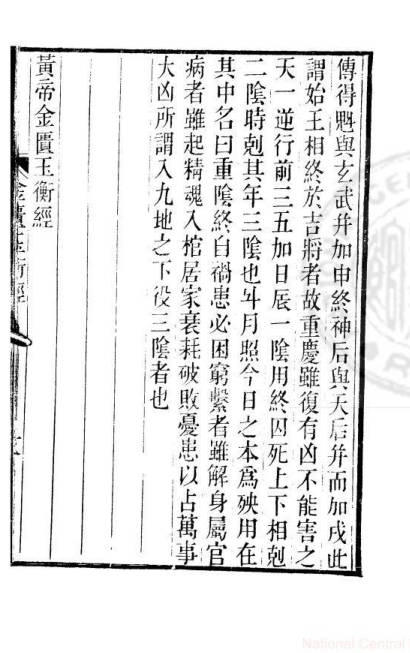 傳得魁與玄武并加申終神后與天后并而加戌此
謂始王相終於吉將者故重慶雖復有凶不能害之
天一逆行前三五加日辰一陰用終囚死上下相剋
二陰時剋其年三陰也斗月照今日之本爲殃用在
其中名曰重陰終自禍患必困窮繫者雖解身屬官
病者雖起精魂入棺居家衰耗破敗憂患以占萬事
大凶所謂入九地之下役三陰者也
黃帝金匱玉衡經
金匱玉衡經
National Central